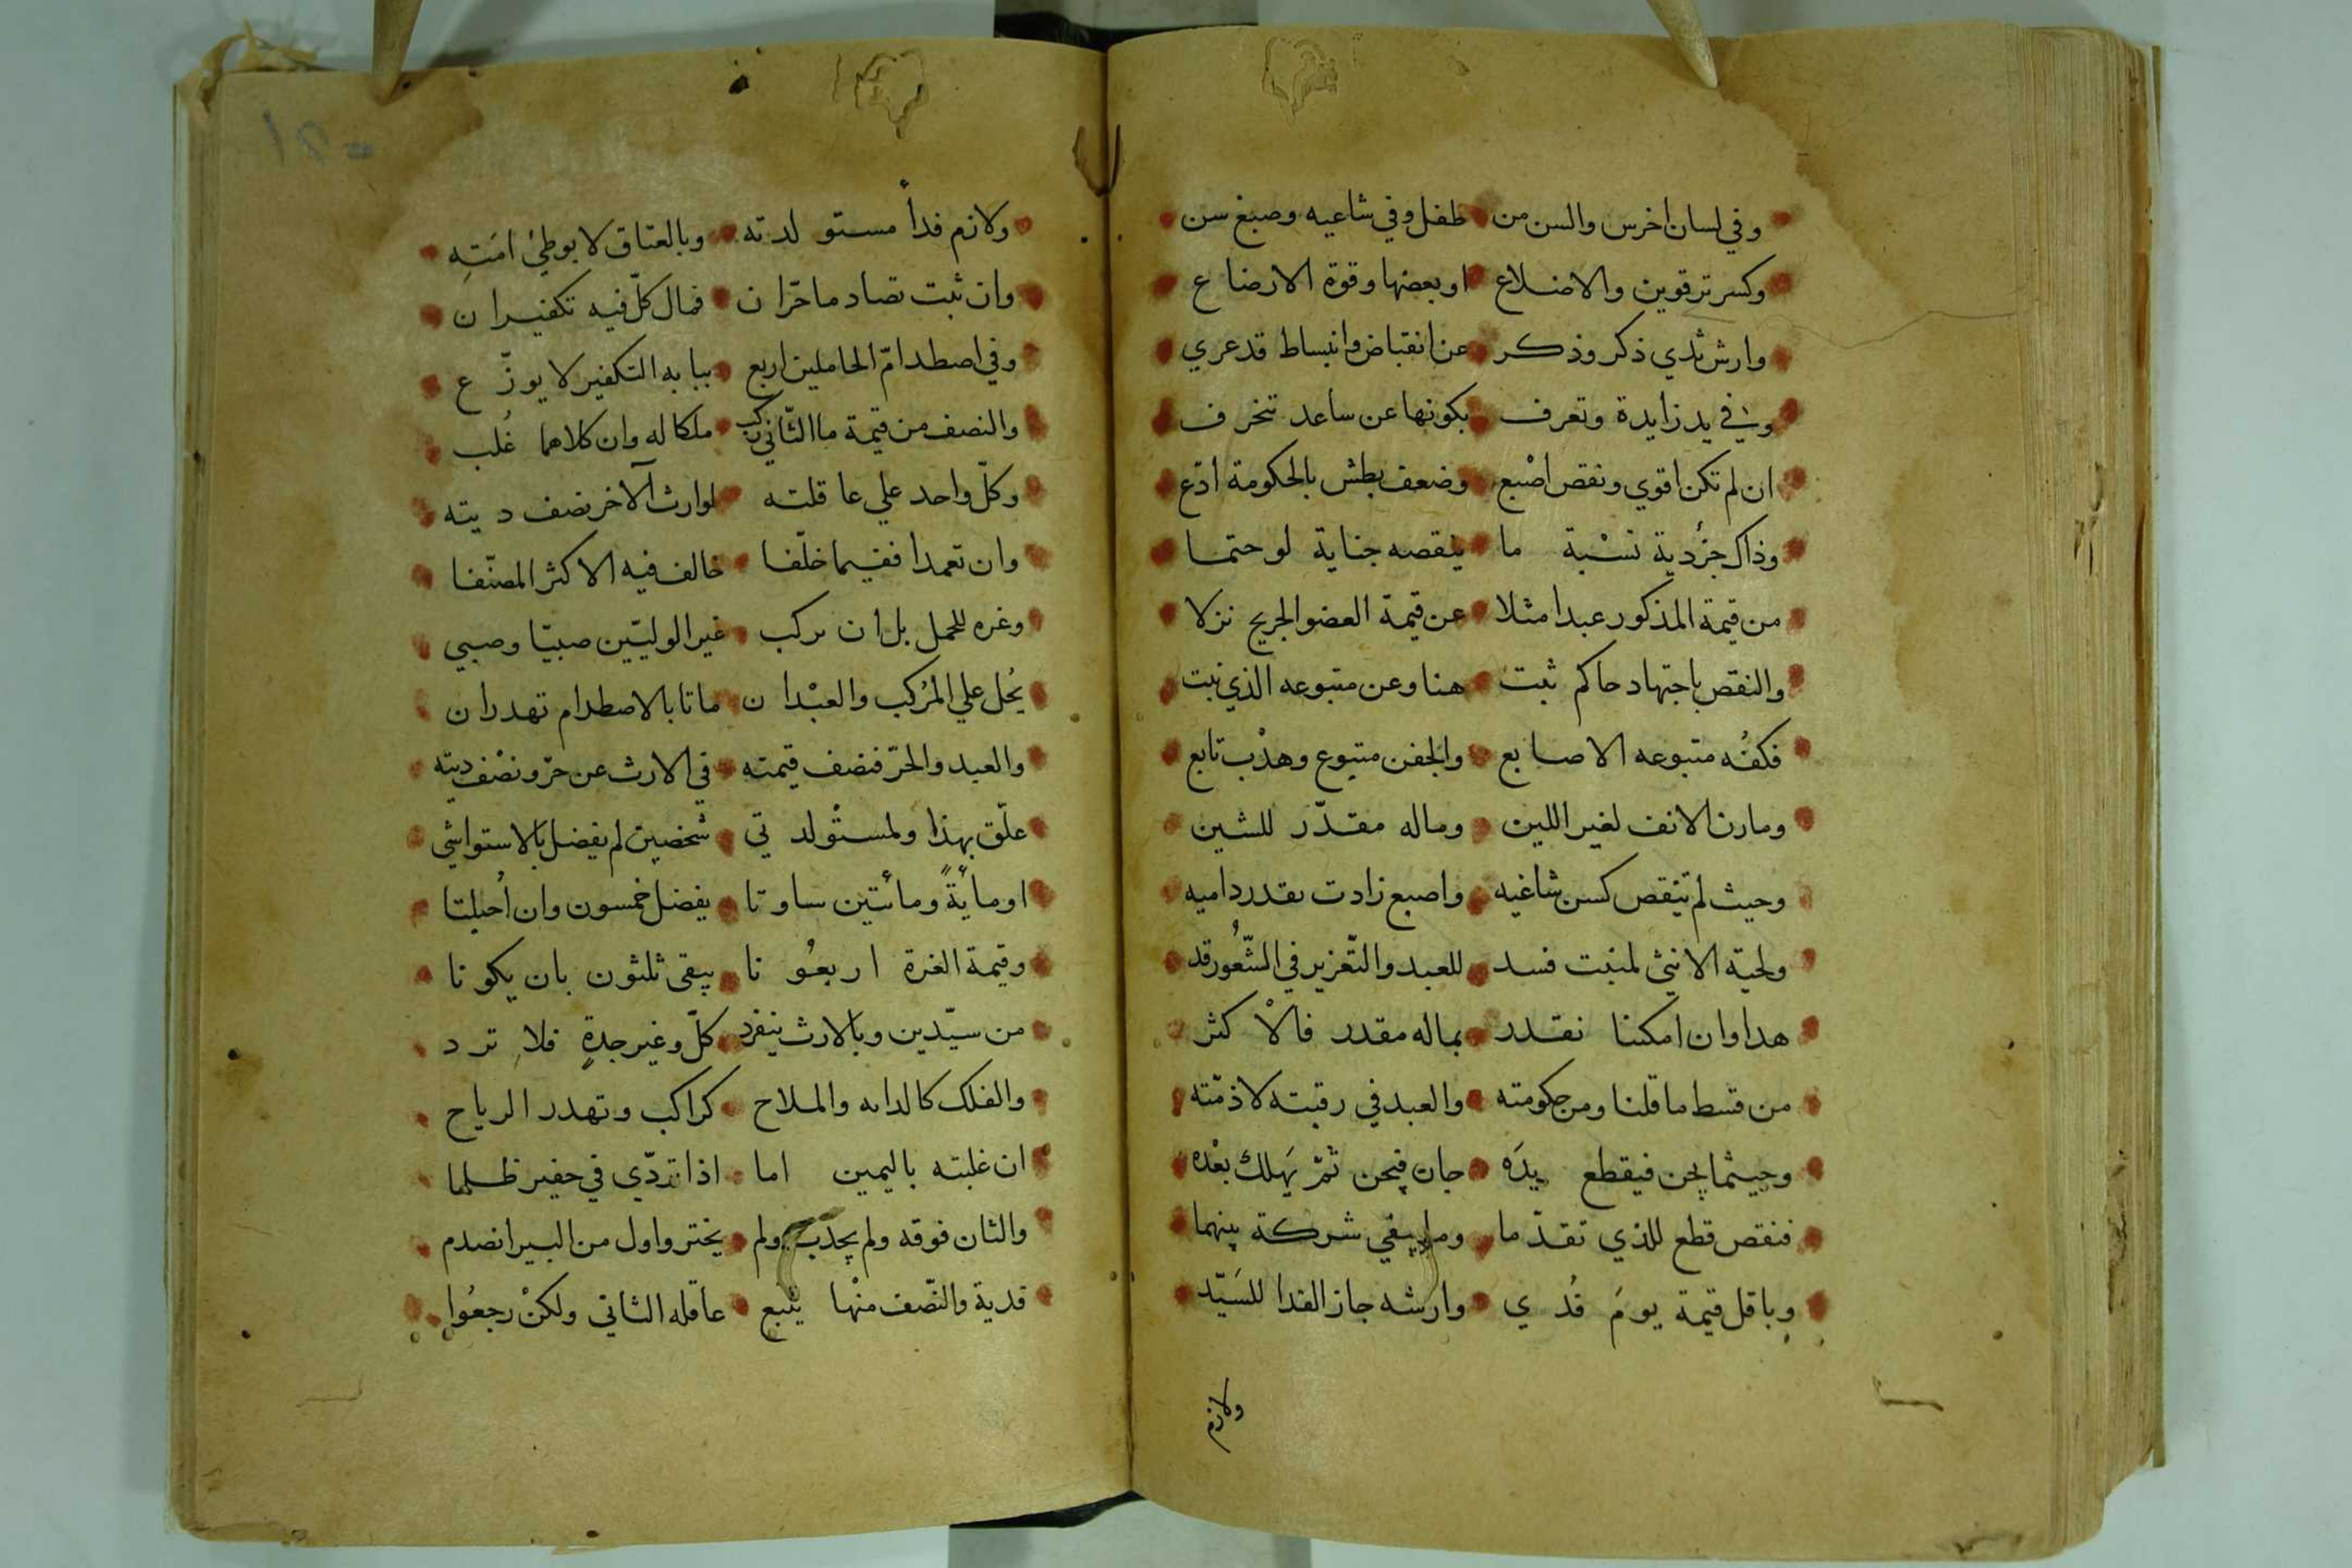 وفي لسان اخرس والسن من طفل وفي شاغيه وصبغ سن
وكسر ترقوين والاضلاع او بعضها وقوة الارضاع
وارش ثدي ذكر وذكر عن انقباض وانبساط قد عري
وفي يد زايدة وتعرف بكونها عن ساعد تنحرف
ان لم تكن اقوي ونقص اصْبع وضعف بطش بالحكومة ادّع
وذاك جزُ دية نسْبة ما ينقصه جناية لو حتما
من قيمة المذكور عبدا مثلا عن قيمة العضو الجريح نزلا
والنقص باجتهاد حاكم ثبت هنا وعن متبوعه الذي نبت
فكفُه متبوعه الاصابع والجفن متبوع وهدْب تابع
ومارن الانف لغير اللين وماله مقدّر للشين
وحيث لم تنقص كسن شاغيه واصبع زادت بقدر داميه
ولحية الانثى لمنبت فسد للعبد والتّعزير في الشّعُور قد
هدا وان امكننا نقدر بماله مقدر فالاْكثر
من قسط ما قلنا ومن حكومته والعبد في رقبته لا ذمّته
وحيثما يجن فيقطع يدَه جان فيجن ثمّ يَهلك بعْده
فنقص قطع للذي تقدّما وما يبقي شركة بينهما
وباقل قيمة يومَ فُدي وارشه جاز الفدا للسَيّد
ولازم
ولازم فدأ مستولدته وبالعتاق لا بوطئ امَتِه
وان ثبت تصادما حرّان فمال كلّ فيه تكفيران
وفي اصطدام الحاملين اربع ببابه التكفير لا يوزّع
والنصف من قيمة ما الثّاني ركب ملكا له وان كلاهما غُلب
وكلّ واحد علي عاقلته لوارث الآخر نصف ديته
وان تعمدا ففيما خلّفا خالف فيه الاكثر المصنّفا
وغره للحمل بل ان يركب غير الوليّين صبيّا وصبي
يُحل علي المُركب والعبْدان ماتا بالاصطدام تهدران
والعبد والحرّ فنصف قيمته في الارث عن حرّ ونصْف ديته
علّق بهذا ولمستوْلدتي شخصين لم يفضل بالاستواشي
او مايةً ومائتين ساوتا يفضل خمسون وان اُحبلتا
وقيمة الغرة اربعُونا يبقى ثلثون بان يكونا
من سيّدين وبالارث ينفرد كلّ وغير جدةٍ فلا ترد
والفلك كالدابه والملاح كراكب وتهدر الرياح
ان غلبته باليمين اما اذا تردّي في حفير ظلما
والثان فوقه ولم يجذب ولم يختر واول من البير انصدم
فدية والنّصف منْها يتبع عاقله الثاني ولكنْ رجعُوا